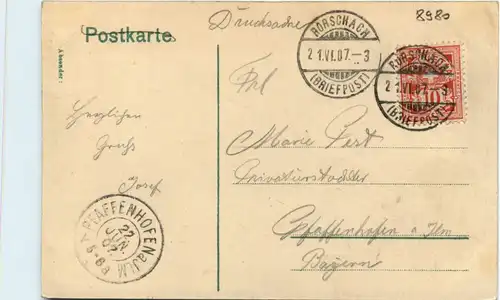 8980
Postkarte
Drucksache
Absender:
RORSCHACH
21.VI.07.-3
(BRIEFPOST)
RORSCHACH
21.VI.07.-3
(BRIEFPOST)
10
Frl.
Marie
Herzlichen
Gruß
Josef
Pfaffenhofen a Ilm
Bayern
PFAFFENHOFEN a. ILM
22
JUN
07